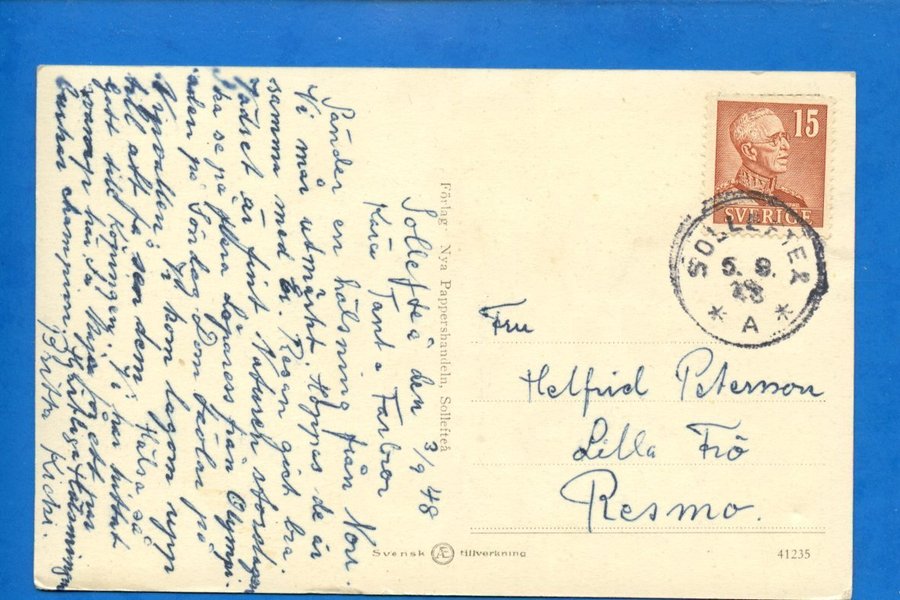 Sollefteå den 3/9 48
Kära Tant o Farbror
Sänder en hälsning från Norr.
Vi må utmärkt. Hoppas de är
samma med Er. Resan gick bra.
Vädret är fint Naturen storslagen
ska se på flera löpare från Olympi-
aden på Söndag. Don Skolan på
Vi kom lagom upp
till att få se dem i
gott till Kungen. har hittat
svamp här. Så Maja
burkar champinn. Hjärtliga Hälsningar
Britta Kicki
Förlag Nya Pappershandeln, Sollefteå
15
SVERIGE
SOLLEFTEÅ
5. 9.
48
* A *
Fru
Helfrid Peterson
Lilla Frö
Resmo.
Svensk Æ tillverkning
41235